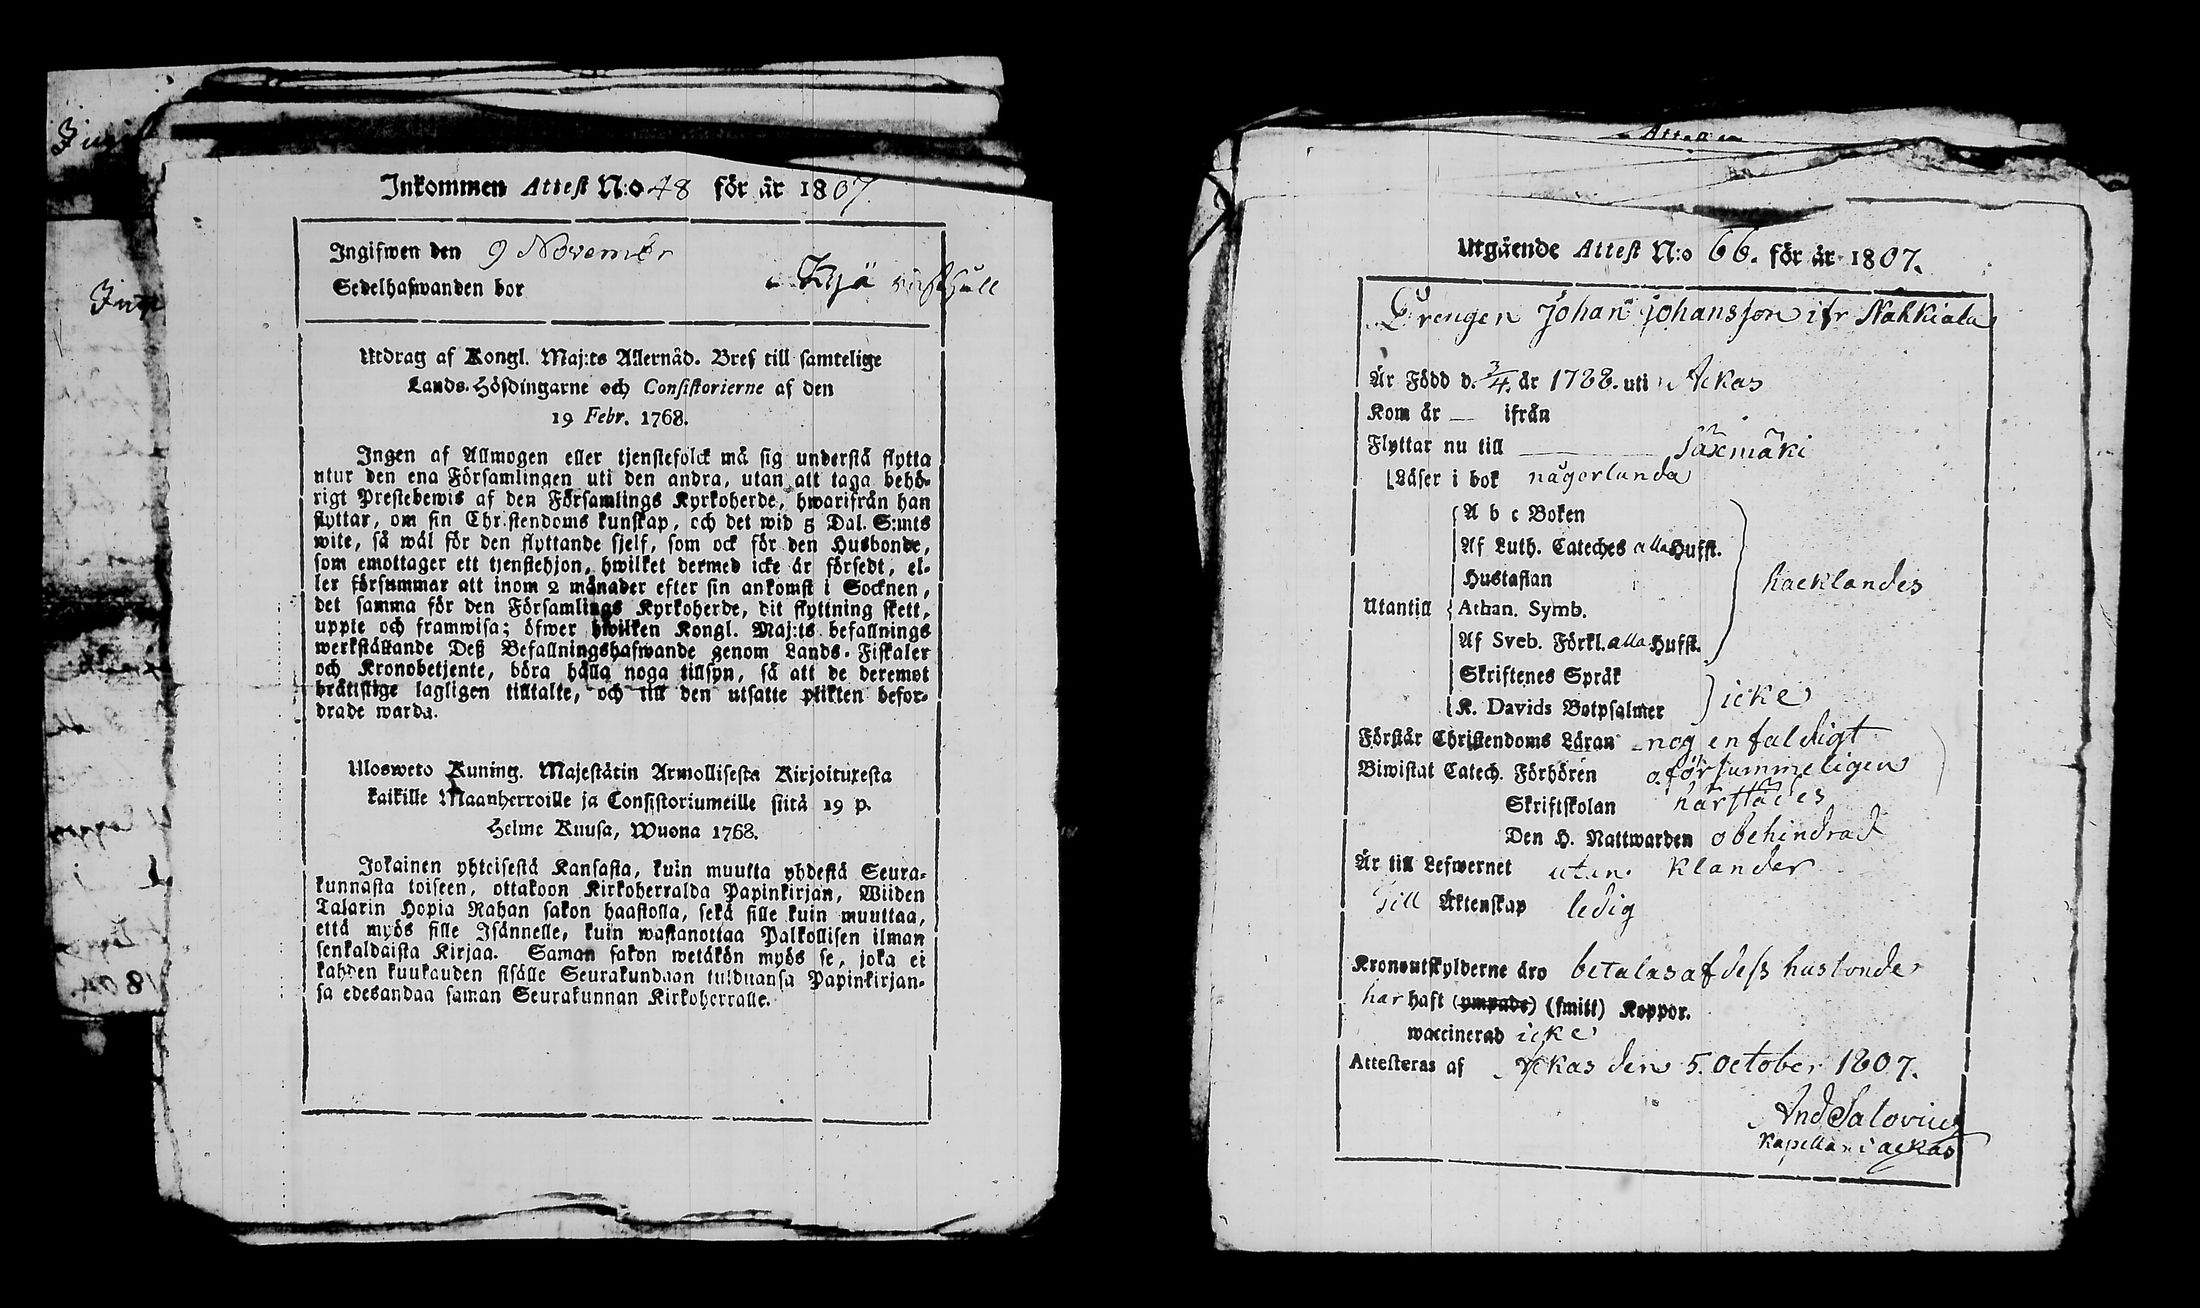 Inkommen Attest N:o 48 för år 1807.
Ingifwen den 9 November
Sedelhafwanden bor
Utdrag af Kongl. Maj:ts Allernåd. Bref till samtelige
Lands-Höfdingarne och Consistorierne af den
19 Febr. 1768.
Ingen af Allmogen eller tjenstefolck må sig understå flytta
utur den ena Församlingen uti den andra, utan att taga behö-
rigt Prestebewis af den Församlings Kyrkoherde, hwarifrån han
flyttar, om sin Christendoms kunskap, och det wid 5 Dal. S:mts
wite, så wäl för den flyttande sjelf, som ock för den Husbonde,
som emottager ett tjenstehjon, hwilket dermed icke är försedt, el-
ler försummar att inom 2 månader efter sin ankomst i Socknen,
det samma för den Församlings Kyrkoherde, dit flyttning skett,
uppte och framwisa; öfwer hwilken Kongl. Maj:ts befallnings
werkställande Deß Befallningshafwande genom Lands-Fiskaler
och Kronobetjente, böra hålla noga tillsyn, så att de deremot
brätslige lagligen tilltalte, och till den utsatte plikten befor-
drade warda.
Ulosweto Kuning. Majestätin Armollisesta Kirjoituxesta
kaikille Maanherroille ja Consistoriumeille siitä 19 p.
Helme Kuusa, Wuona 1768.
Jokainen yhteisestä Kansasta, kuin muutta yhdestä Seura-
kunnasta toiseen, ottakoon Kirkoherralda Papinkirjan, Wiiden
Talarin Hopia Rahan sakon haastolla, sekä sille kuin muuttaa,
että myös sille Isännelle, kuin wastanottaa Palkollisen ilman
senkaldaista Kirjaa. Saman sakon wetäkön myös se, joka ei
kahden kuukauden sisälle Seurakundaan tulduansa Papinkirjan-
sa edesandaa saman Seurakunnan Kirkoherralle.
Utgående Attest N:o 66. för år 1807.
Drengen Johan Johansson ifr Nahkiala
Är Född d. 3/4. år 1788. uti Ackas
Kom år — ifrån
Flyttar nu till Säxmäki
Läser i bok någorlunda
A b c Boken
Af Luth. Cateches alla Hufst.
Hustaflan
Utantill Athan. Symb. hacklandes
Af Sveb. Förkl. alla Hufst.
Skriftenes Språk
K. Davids Botpsalmer icke
Förstår Christendoms Läran nog enfaldigt
Biwistat Catech. Förhören oförsummeligen
Skriftskolan härstädes
Den H. Nattwarden obehindrad
Är till Lefwernet utan klander
Till Äktenskap ledig
Kronoutskylderne äro betalas af dess husbonde
har haft (ympade) (smitt) Koppor.
waccinerad icke
Attesteras af Ackas den 5. October 1807.
And Salovius
Kapellan i ackas